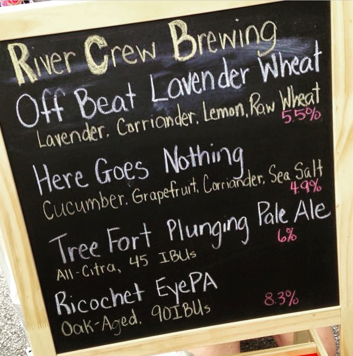 River Crew Brewing
Off Beat Lavender Wheat
Lavender, Corriander, Lemon, Raw Wheat
5.5%
Here Goes Nothing
Cucumber, Grapefruit, Corriander, Sea Salt
4.9%
Tree Fort Plunging Pale Ale
6%
All-Citra, 45 IBUs
Ricochet EyePA
8.3%
Oak-Aged, 90IBUs